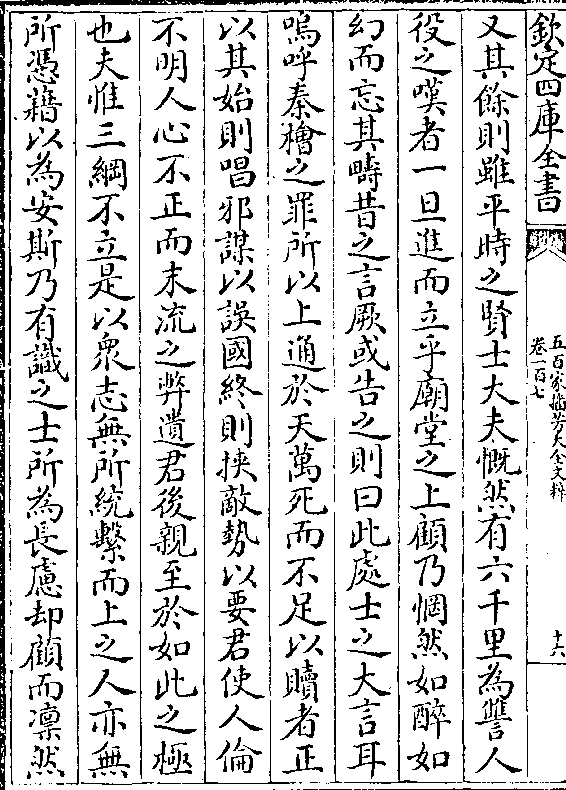 欽定四庫全書
五百家播芳大全文粹
卷一百七
十六
又其餘則雖平時之賢士大夫慨然有六千里為讐人
役之嘆者一旦進而立乎廟堂之上顧乃惘然如醉如
幻而忘其疇昔之言厥或告之則曰此處士之大言耳
嗚呼秦檜之罪所以上通於天萬死而不足以贖者正
以其始則唱邪謀以誤國終則挾敵勢以要君使人倫
不明人心不正而末流之弊遺君後親至於如此之極
也夫惟三綱不立是以衆志無所統繫而上之人亦無
所憑藉以為安斯乃有識之士所為長慮却顧而凛然